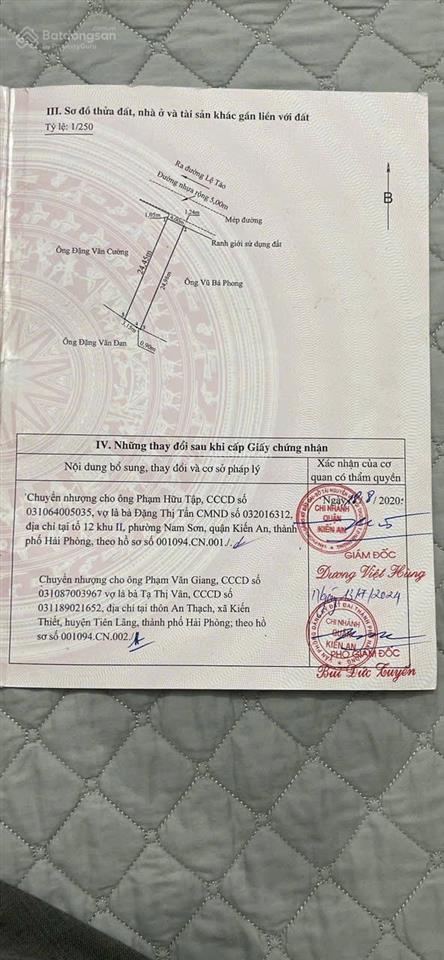 Batdongsan
by PropertyGuru
III. Sơ đồ thửa đất, nhà ở và tài sản khác gắn liền với đất
Tỷ lệ: 1/250
Ra đường Lệ Tảo
Đường nhựa rộng 5,00m
1,24m
1,05m
Mép đường
B
Ranh giới sử dụng đất
Ông Đặng Văn Cường
24,45m
24,98m
Ông Vũ Bá Phong
Ông Đặng Văn Đan
3,15m
0,90m
IV. Những thay đổi sau khi cấp Giấy chứng nhận
Nội dung bổ sung, thay đổi và cơ sở pháp lý
Xác nhận của cơ
quan có thẩm quyền
Chuyển nhượng cho ông Phạm Hữu Tập, CCCD số
031064005035, vợ là bà Đặng Thị Tẩn CMND số 032016312,
địa chỉ tại tổ 12 khu II, phường Nam Sơn, quận Kiến An, thành
phố Hải Phòng, theo hồ sơ số 001094.CN.001
Ngày 18/8/2020
CHI NHÁNH
QUẬN
KIẾN AN
GIÁM ĐỐC
Dương Việt Hùng
Chuyển nhượng cho ông Phạm Văn Giang, CCCD số
031087003967 vợ là bà Tạ Thị Vân, CCCD số
031189021652, địa chỉ tại thôn An Thạch, xã Kiến
Thiết, huyện Tiên Lãng, thành phố Hải Phòng; theo hồ
sơ số 001094.CN.002
CHI NHÁNH
QUẬN
KIẾN AN
PHÓ GIÁM ĐỐC
Bùi Đức Tuyến